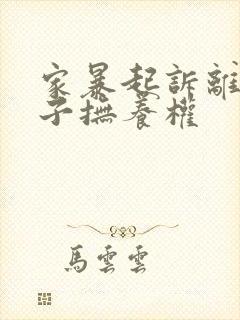 家暴起訴離
子撫養權
馬雲雲